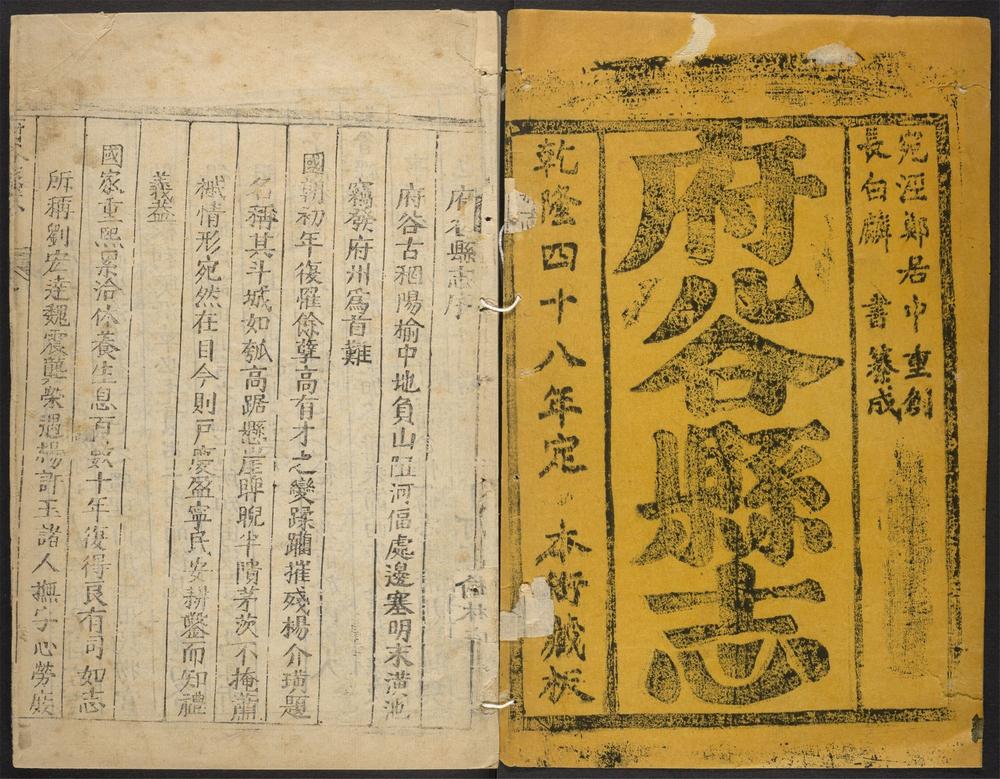 宛涇鄭居中重創
長白麟書纂成
府谷縣志
乾隆四十八年定 本衙藏板
府谷縣志序
府谷古稒陽榆中地負山阻河偪處邊塞明末潢池
竊發府州爲首難
國朝初年復罹餘孽高有才之變蹂躪摧殘楊介璜題
名稱其斗城如瓠高踞懸崖睥睨半隤茅茨不掩蕭
槭情形宛然在目今則戸慶盈寧民安耕鑿而知禮
義蓋
國家重熙累洽休養生息百數十年復得良有司如志
所稱劉宏逵魏震龔榮遇楊許玉諸人撫字心勞